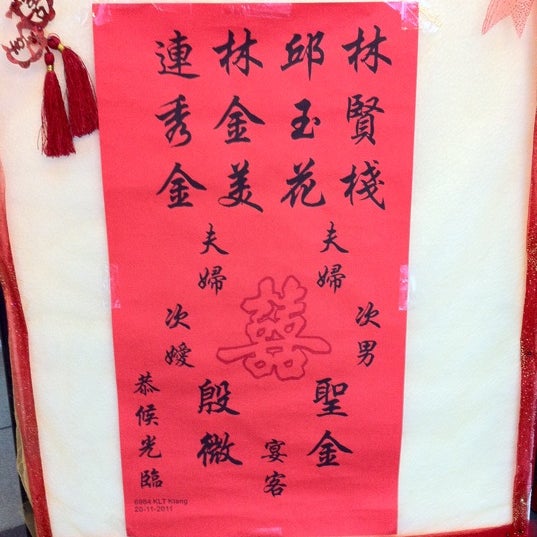 林賢棧
邱玉花
夫婦
次男
聖金
林金美
連秀金
夫婦
次嬡
殷微
宴客
恭候光臨
囍
6984 KLT Klang
20-11-2011